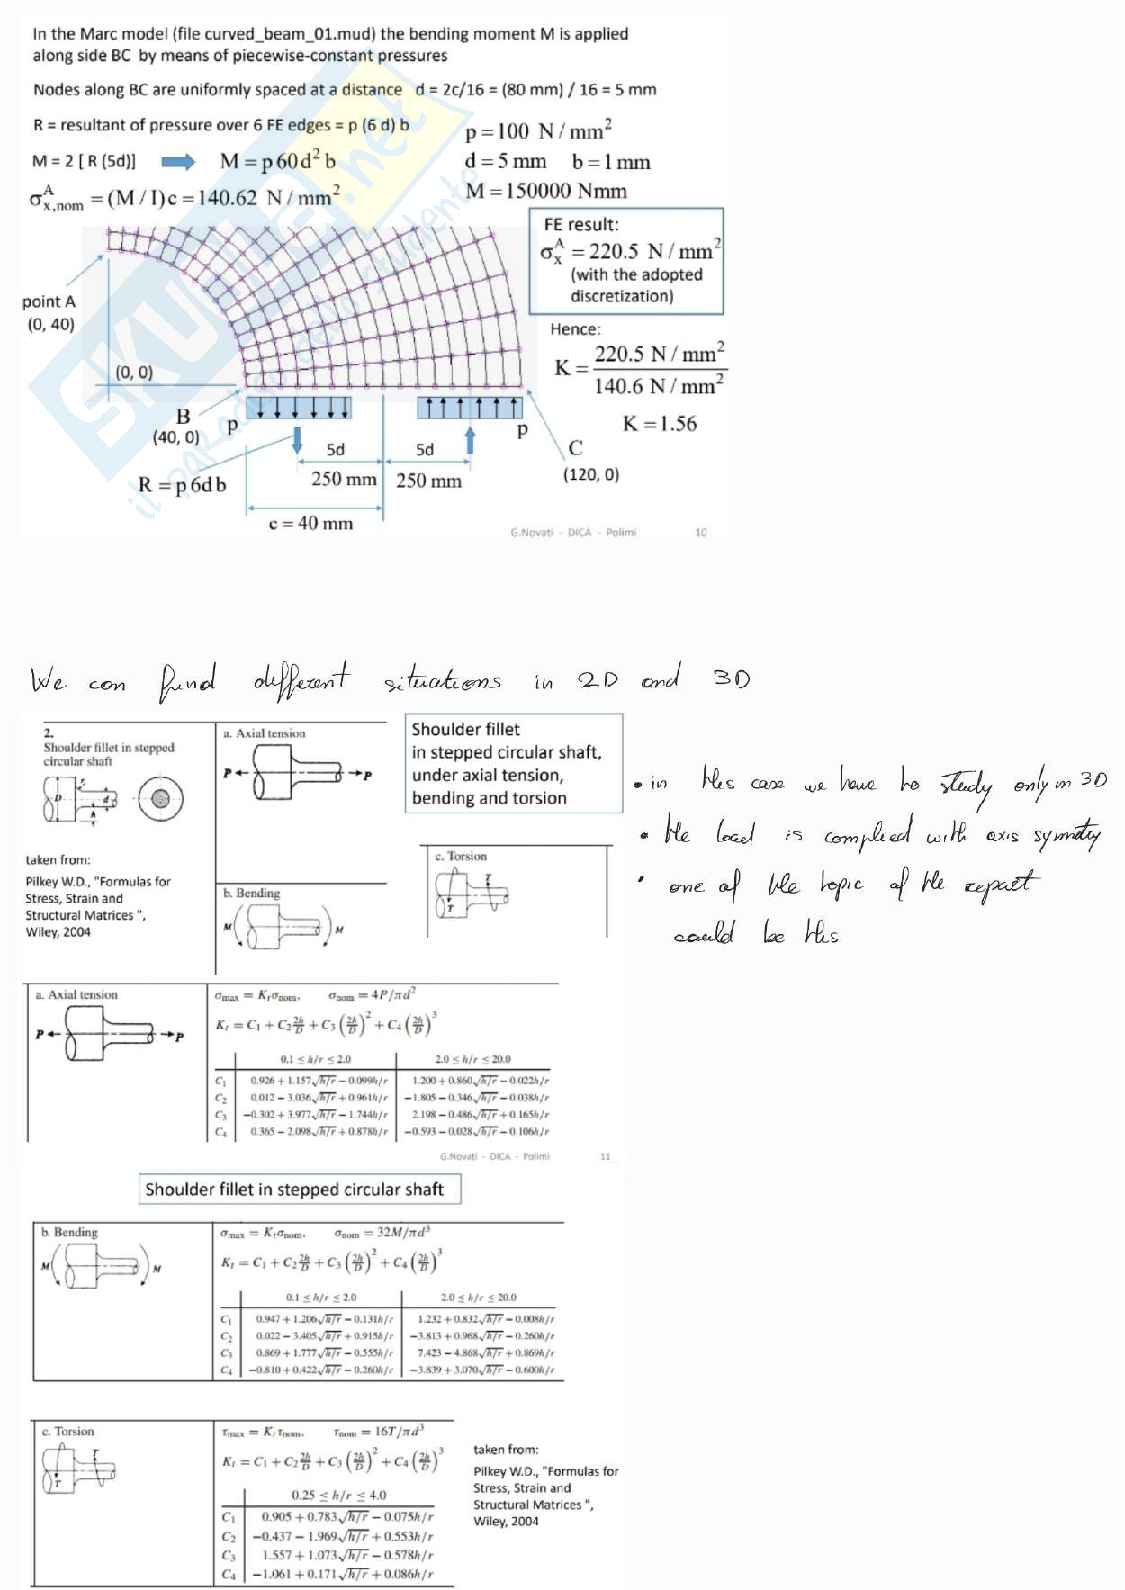 In the Marc model (file curved_beam_01.mud) the bending moment M is applied
along side BC by means of piecewise-constant pressures
Nodes along BC are uniformly spaced at a distance d = 2c/16 = (80 mm) / 16 = 5 mm
R = resultant of pressure over 6 FE edges = p (6 d) b
p = 100 N/mm²
M = 2 [ R (5d)] M = p 60 d² b
d = 5 mm b = 1 mm
σ^A_x,nom = (M / I)c = 140.62 N/mm²
M = 150000 Nmm
FE result:
σ^A_x = 220.5 N/mm²
(with the adopted
discretization)
point A
(0, 40)
Hence:
K = 220.5 N/mm² / 140.6 N/mm²
(0, 0)
K = 1.56
B
(40, 0)
p
p
5d
5d
C
(120, 0)
R = p 6d b
250 mm
250 mm
c = 40 mm
G.Novati - DICA - Polimi 10
We can find different situations in 2D and 3D
2.
Shoulder fillet in stepped
circular shaft
D
r
d
h
a. Axial tension
P
P
Shoulder fillet
in stepped circular shaft,
under axial tension,
bending and torsion
• in this case we have to study only in 3D
• the load is complied with axis symmetry
• one of the topic of the report
could be this
taken from:
Pilkey W.D., "Formulas for
Stress, Strain and
Structural Matrices ",
Wiley, 2004
b. Bending
M
M
c. Torsion
T
T
a. Axial tension
P
P
σmax = Ktσnom, σnom = 4P/πd²
Kt = C1 + C2 2h/D + C3 (2h/D)² + C4 (2h/D)³
0.1 ≤ h/r ≤ 2.0 2.0 ≤ h/r ≤ 20.0
C1 0.926 + 1.157√h/r − 0.099h/r 1.200 + 0.860√h/r − 0.022h/r
C2 0.012 − 3.036√h/r + 0.961h/r −1.805 − 0.346√h/r − 0.038h/r
C3 −0.302 + 3.977√h/r − 1.744h/r 2.198 − 0.486√h/r + 0.165h/r
C4 0.365 − 2.098√h/r + 0.878h/r −0.593 − 0.028√h/r − 0.106h/r
G.Novati - DICA - Polimi 11
Shoulder fillet in stepped circular shaft
b. Bending
M
M
σmax = Ktσnom, σnom = 32M/πd³
Kt = C1 + C2 2h/D + C3 (2h/D)² + C4 (2h/D)³
0.1 ≤ h/r ≤ 2.0 2.0 ≤ h/r ≤ 20.0
C1 0.947 + 1.206√h/r − 0.131h/r 1.232 + 0.832√h/r − 0.008h/r
C2 0.022 − 3.405√h/r + 0.915h/r −3.813 + 0.968√h/r − 0.260h/r
C3 0.869 + 1.777√h/r − 0.555h/r 7.423 − 4.868√h/r + 0.869h/r
C4 −0.810 + 0.422√h/r − 0.260h/r −3.839 + 3.070√h/r − 0.600h/r
c. Torsion
T
T
τmax = Kt τnom, τnom = 16T/πd³
Kt = C1 + C2 2h/D + C3 (2h/D)² + C4 (2h/D)³
0.25 ≤ h/r ≤ 4.0
C1 0.905 + 0.783√h/r − 0.075h/r
C2 −0.437 − 1.969√h/r + 0.553h/r
C3 1.557 + 1.073√h/r − 0.578h/r
C4 −1.061 + 0.171√h/r + 0.086h/r
taken from:
Pilkey W.D., "Formulas for
Stress, Strain and
Structural Matrices ",
Wiley, 2004